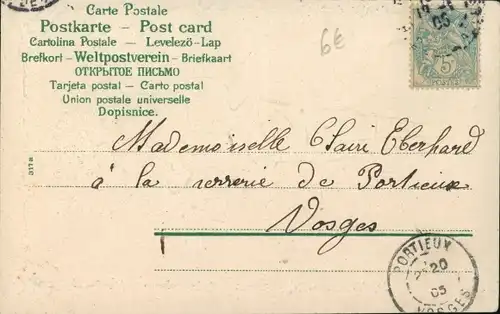 Carte Postale
Postkarte – Post card
Cartolina Postale – Levelezö-Lap
Brefkort - Weltpostverein - Briefkaart
ОТКРЫТОЕ ПИСЬМО
Tarjeta postal – Carto postal
Union postale universelle
Dopisnice.
6€
5
POSTES
05
Mademoiselle Claire Eberhard
à la verrerie de Portieux
Vosges
PORTIEUX
20
05
VOSGES